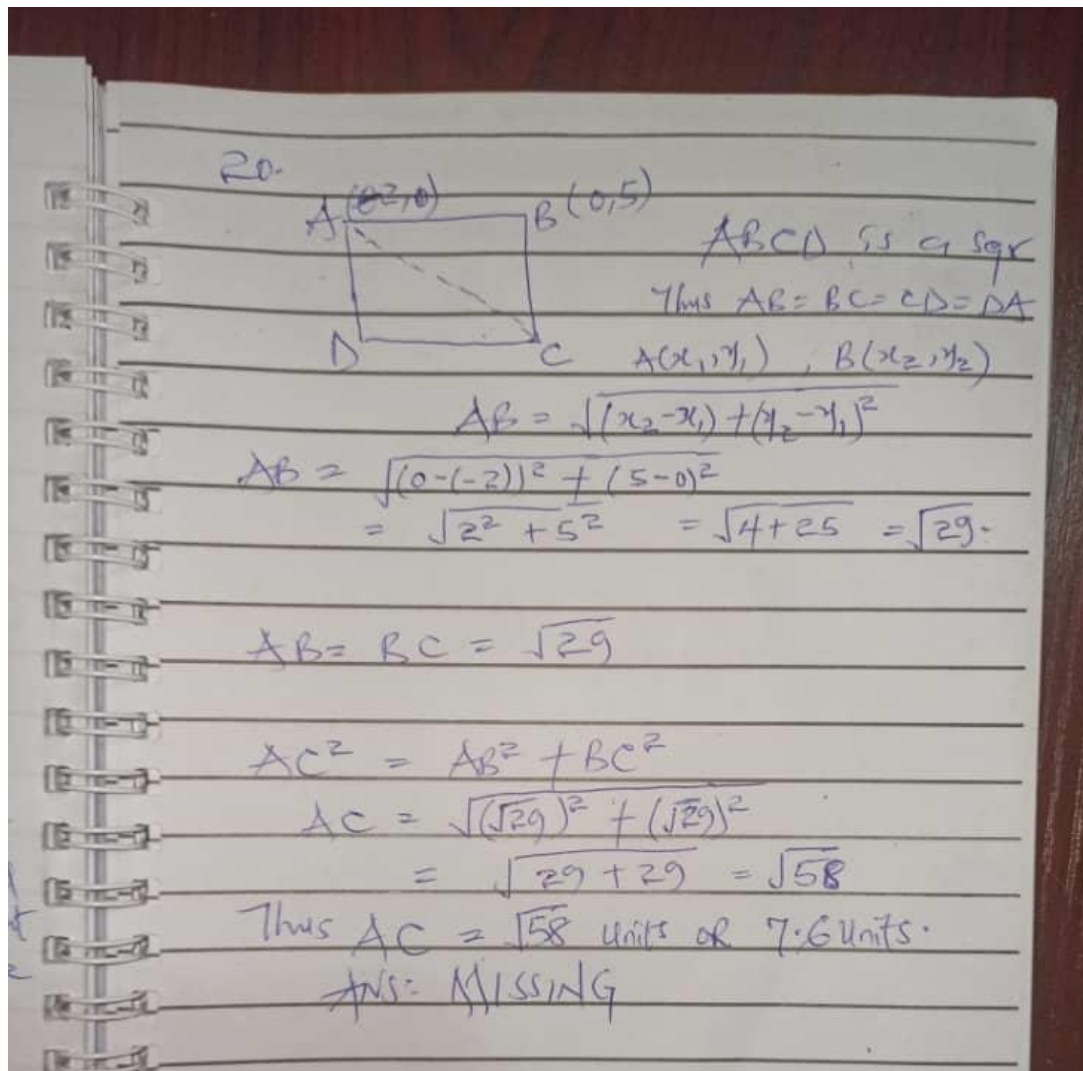 20.
A (-2,0) B (0,5)
ABCD is a sqr
Thus AB = BC = CD = DA
D C A(x₁,y₁) , B(x₂,y₂)
AB = √((x₂-x₁) + (y₂-y₁)²)
AB = √((0-(-2))² + (5-0)²)
= √(2² + 5²) = √(4+25) = √29.
AB = BC = √29
AC² = AB² + BC²
AC = √((√29)² + (√29)²)
= √(29 + 29) = √58
Thus AC = √58 units OR 7.6 units.
ANS: MISSING